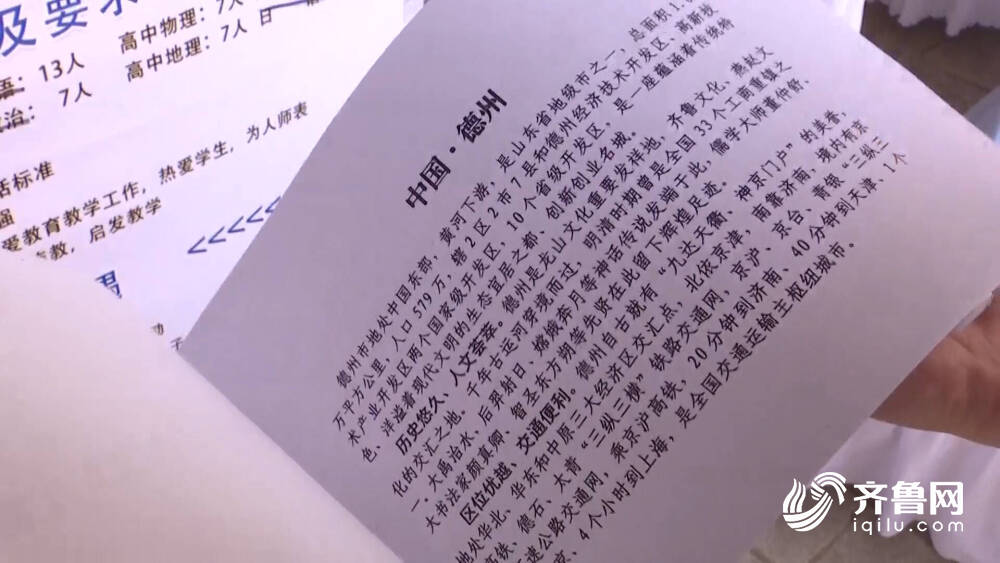 及要求
语：13人 高中物理：7人
治：7人 高中地理：7人 日
标准
强
爱教育教学工作，热爱学生，为人师表
教，启发教学
<<<<<
中国·德州
德州市地处中国东部，黄河下游，是山东省地级市之一，总面积1.0
万平方公里，人口579万，辖2区2市7县和德州经济技术开发区、高新技
术产业开发区两个国家级开发区，10个省级开发区，是一座蕴涵着传统特
色、洋溢着现代文明的生态宜居之都、创新创业名城。
历史悠久、人文荟萃。德州是龙山文化重要发祥地，齐鲁文化、燕赵文
化的交汇之地。千年古运河穿境而过，明清时期曾是全国33个工商重镇之
一。大禹治水、后羿射日、嫦娥奔月等神话传说发端于此，儒学大师董仲舒、
大书法家颜真卿、智圣东方朔等先贤在此留下辉煌足迹。
区位优越、交通便利。德州自古就有“九达天衢、神京门户”的美誉，
地处华北、华东和中原三大经济区交汇点，北依京津，南靠济南，境内有京
高铁、德石、太青“三纵三横”铁路交通网，京沪、京台、青银“三纵三
速公路交通网，乘京沪高铁，20分钟到济南、40分钟到天津、1个
京、4个小时到上海，是全国交通运输主枢纽城市。
齐鲁网
iqilu.com